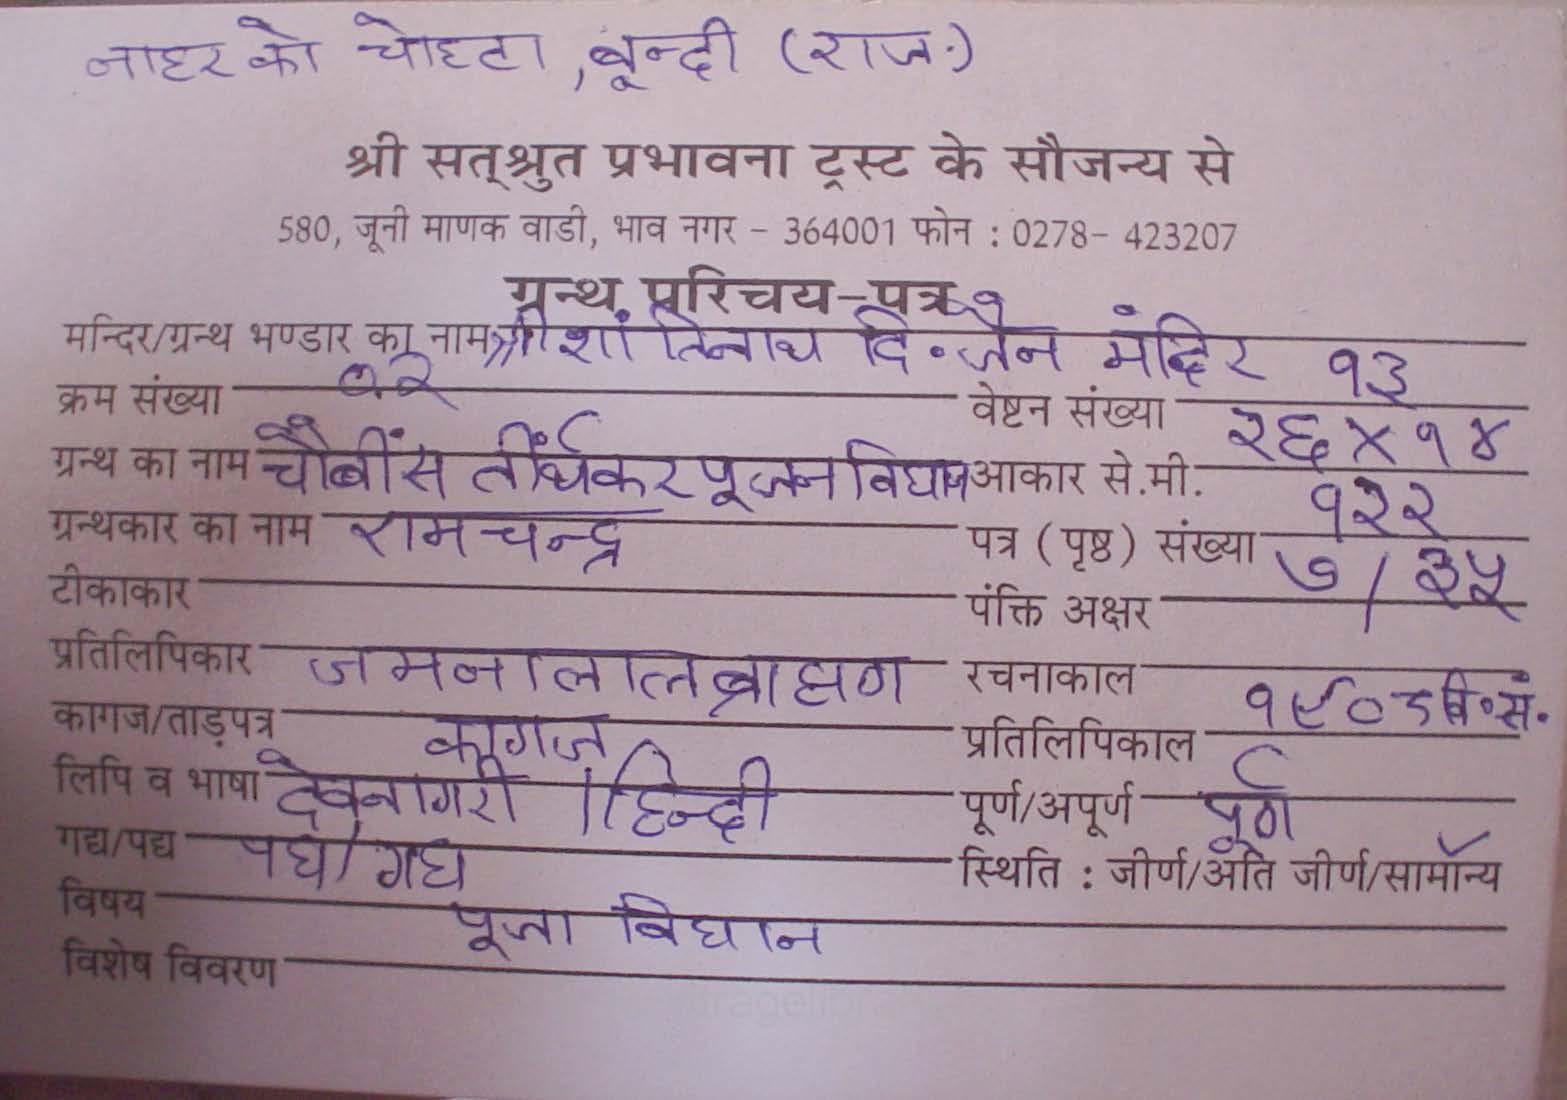 नाहर को चोहटा, बून्दी (राज.)
श्री सत्‌श्रुत प्रभावना ट्रस्ट के सौजन्य से
580, जूनी माणक वाडी, भाव नगर - 364001 फोन : 0278- 423207
ग्रन्थ परिचय-पत्र
मन्दिर/ग्रन्थ भण्डार का नाम श्री शांतिनाथ दि॰ जैन मंदिर
क्रम संख्या १२ वेष्टन संख्या १३
ग्रन्थ का नाम चौबींस तीर्थंकर पूजन विधान आकार से.मी. २६ X १४
ग्रन्थकार का नाम रामचन्द्र पत्र (पृष्ठ) संख्या १२२
टीकाकार पंक्ति अक्षर ७ / ३५
प्रतिलिपिकार जमनालाल ब्राह्मण रचनाकाल
कागज/ताड़पत्र कागज प्रतिलिपिकाल १९०८ वि॰सं.
लिपि व भाषा देवनागरी / हिन्दी पूर्ण/अपूर्ण पूर्ण
गद्य/पद्य पद्य/गद्य स्थिति : जीर्ण/अति जीर्ण/सामान्य ✓
विषय पूजा विधान
विशेष विवरण